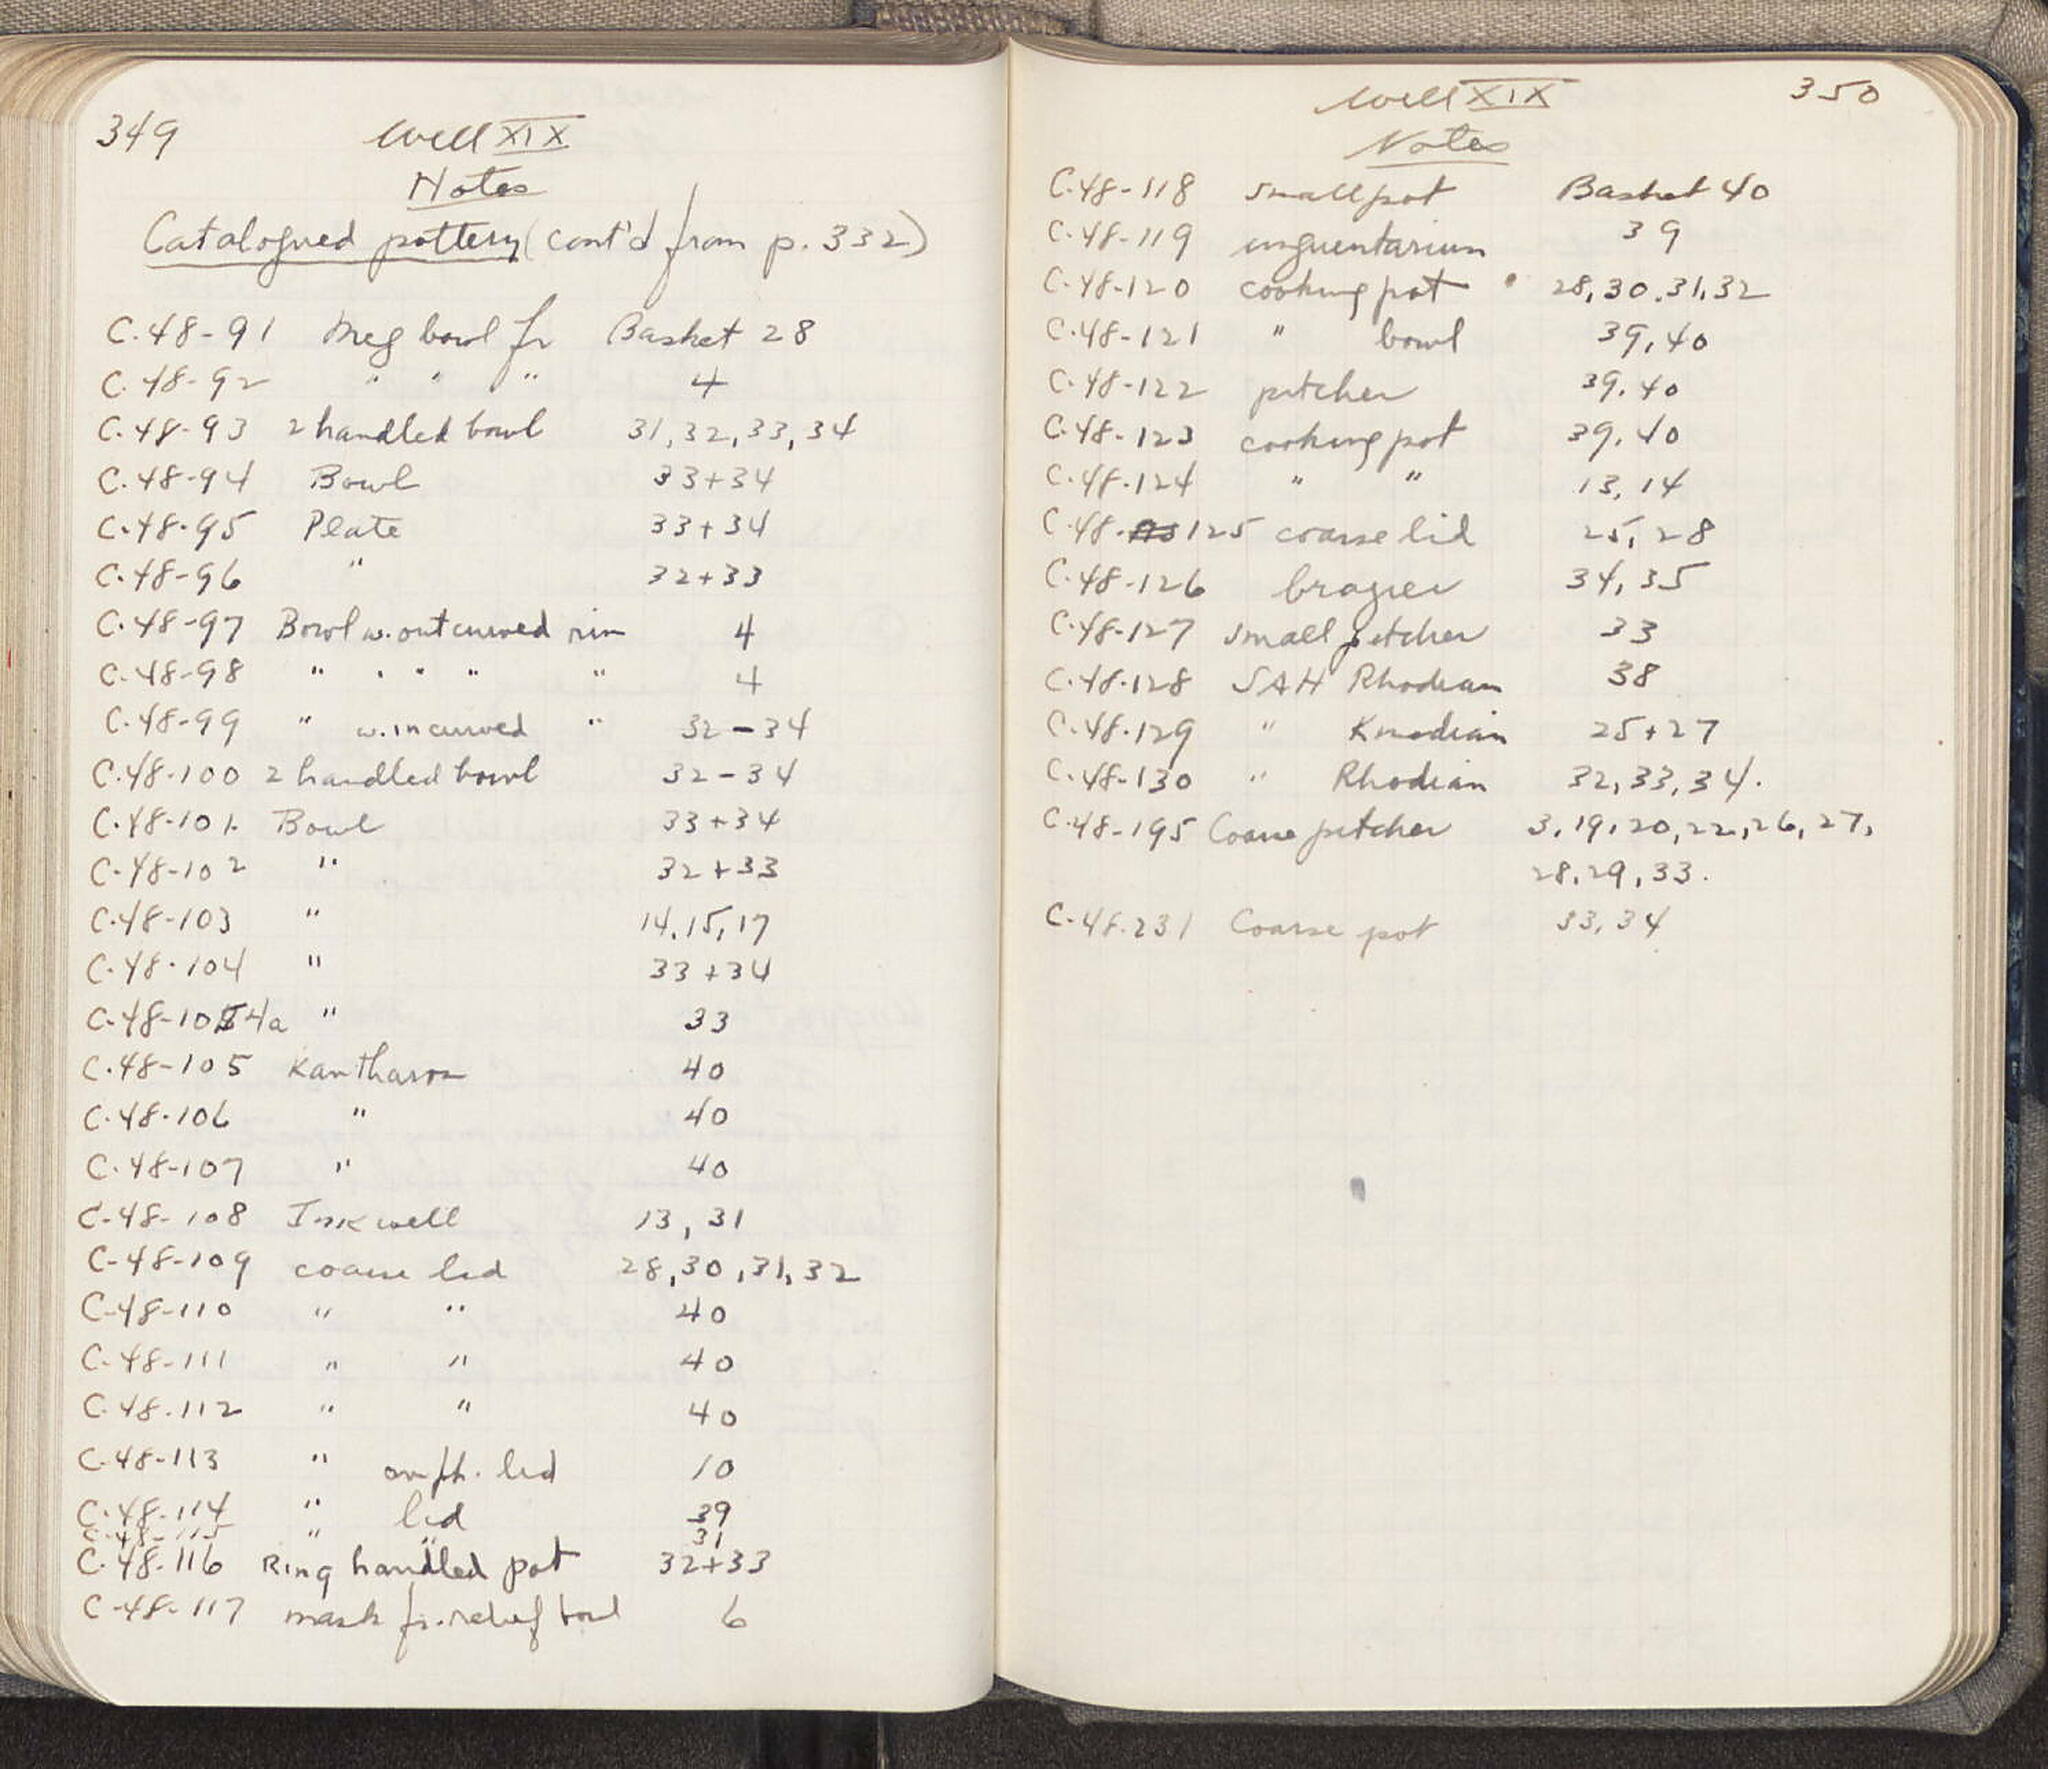 349
Well XIX
Notes
Catalogued pottery (cont'd from p. 332)
C-48-91 Meg bowl fr Basket 28
C-48-92 " " " 4
C-48-93 2 handled bowl 31, 32, 33, 34
C-48-94 Bowl 33+34
C-48-95 Plate 33+34
C-48-96 " 32+33
C-48-97 Bowl w. outcurved rim 4
C-48-98 " " " " " 4
C-48-99 " w. incurved " 32-34
C-48-100 2 handled bowl 32-34
C-48-101 Bowl 33+34
C-48-102 " 32+33
C-48-103 " 14, 15, 17
C-48-104 " 33+34
C-48-104a " 33
C-48-105 Kantharos 40
C-48-106 " 40
C-48-107 " 40
C-48-108 Inkwell 13, 31
C-48-109 coarse lid 28, 30, 31, 32
C-48-110 " " 40
C-48-111 " " 40
C-48-112 " " 40
C-48-113 " amph. lid 10
C-48-114 " lid 39
C-48-115 " " 31
C-48-116 Ring handled pot 32+33
C-48-117 mask fr. relief bowl 6
350
Well XIX
Notes
C-48-118 small pot Basket 40
C-48-119 unguentarium 39
C-48-120 cooking pot 28, 30, 31, 32
C-48-121 " bowl 39, 40
C-48-122 pitcher 39, 40
C-48-123 cooking pot 39, 40
C-48-124 " " 13, 14
C-48-125 coarse lid 25, 28
C-48-126 brazier 34, 35
C-48-127 small pitcher 33
C-48-128 SAH Rhodian 38
C-48-129 " Knidian 25+27
C-48-130 " Rhodian 32, 33, 34.
C-48-195 Coarse pitcher 3, 19, 20, 22, 26, 27,
28, 29, 33.
C-48-231 Coarse pot 33, 34